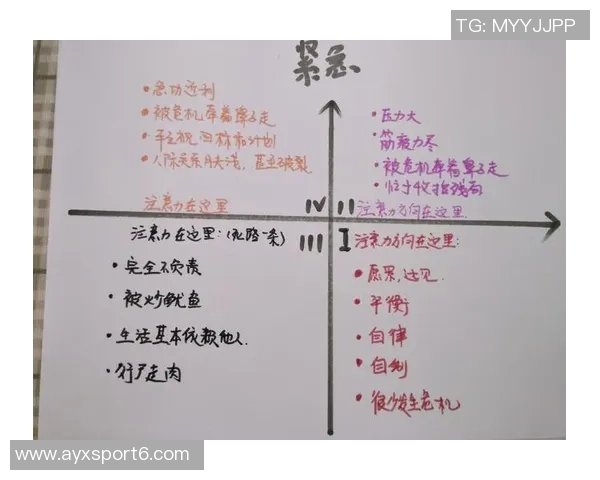 TG: MYYJJPP
紧急
• 急功近利
• 被危机牵着鼻子走
• 轻视目标和计划
• 人际关系肤浅，甚至破裂
注意力在这里 IV
• 压力大
• 筋疲力尽
• 被危机牵着鼻子走
• 忙于收拾残局
II 注意力方向在这里
注意力在这里：(死路一条) III
• 完全不负责
• 被炒鱿鱼
• 生活基本依赖他人
• 行尸走肉
I 注意力方向在这里：
• 愿景，远见
• 平衡
• 自律
• 自制
• 很少发生危机
www.ayxsport6.com